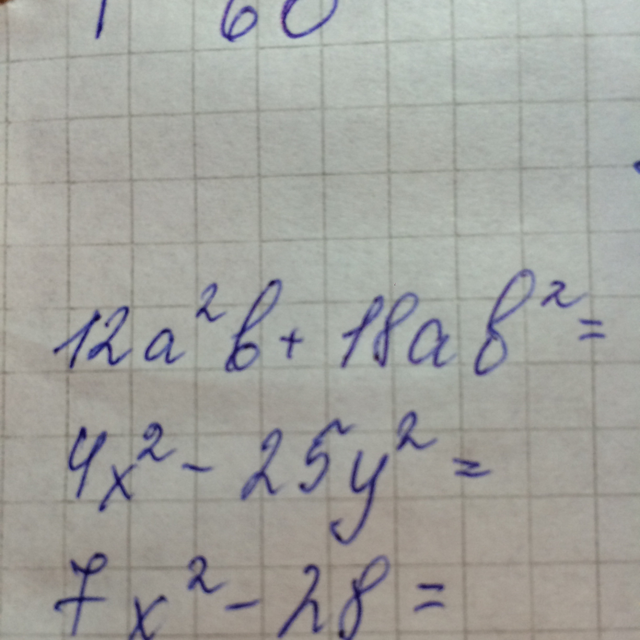 60
12a²b + 18ab² =
4x² - 25y² =
7x² - 28 =